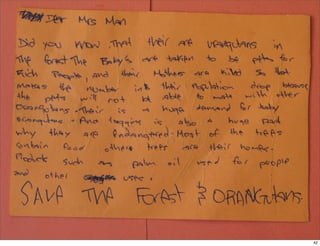 Der Mrs Man
Did you know That their are orangutans in
The forest The Baby's are taken to be pets for
Rich People and their Mothers are killed So that
makes the number in their Population drop because
the pets will not be able to mate with other
Orangutans. Their is a huge demand for baby
orangutans. And logging is also a huge
why they are Endangered. Most of the trees
contain food others trees are their homes.
Product such as palm oil used for people
and other uses.
SAVE THE Forest & ORANGutans
42